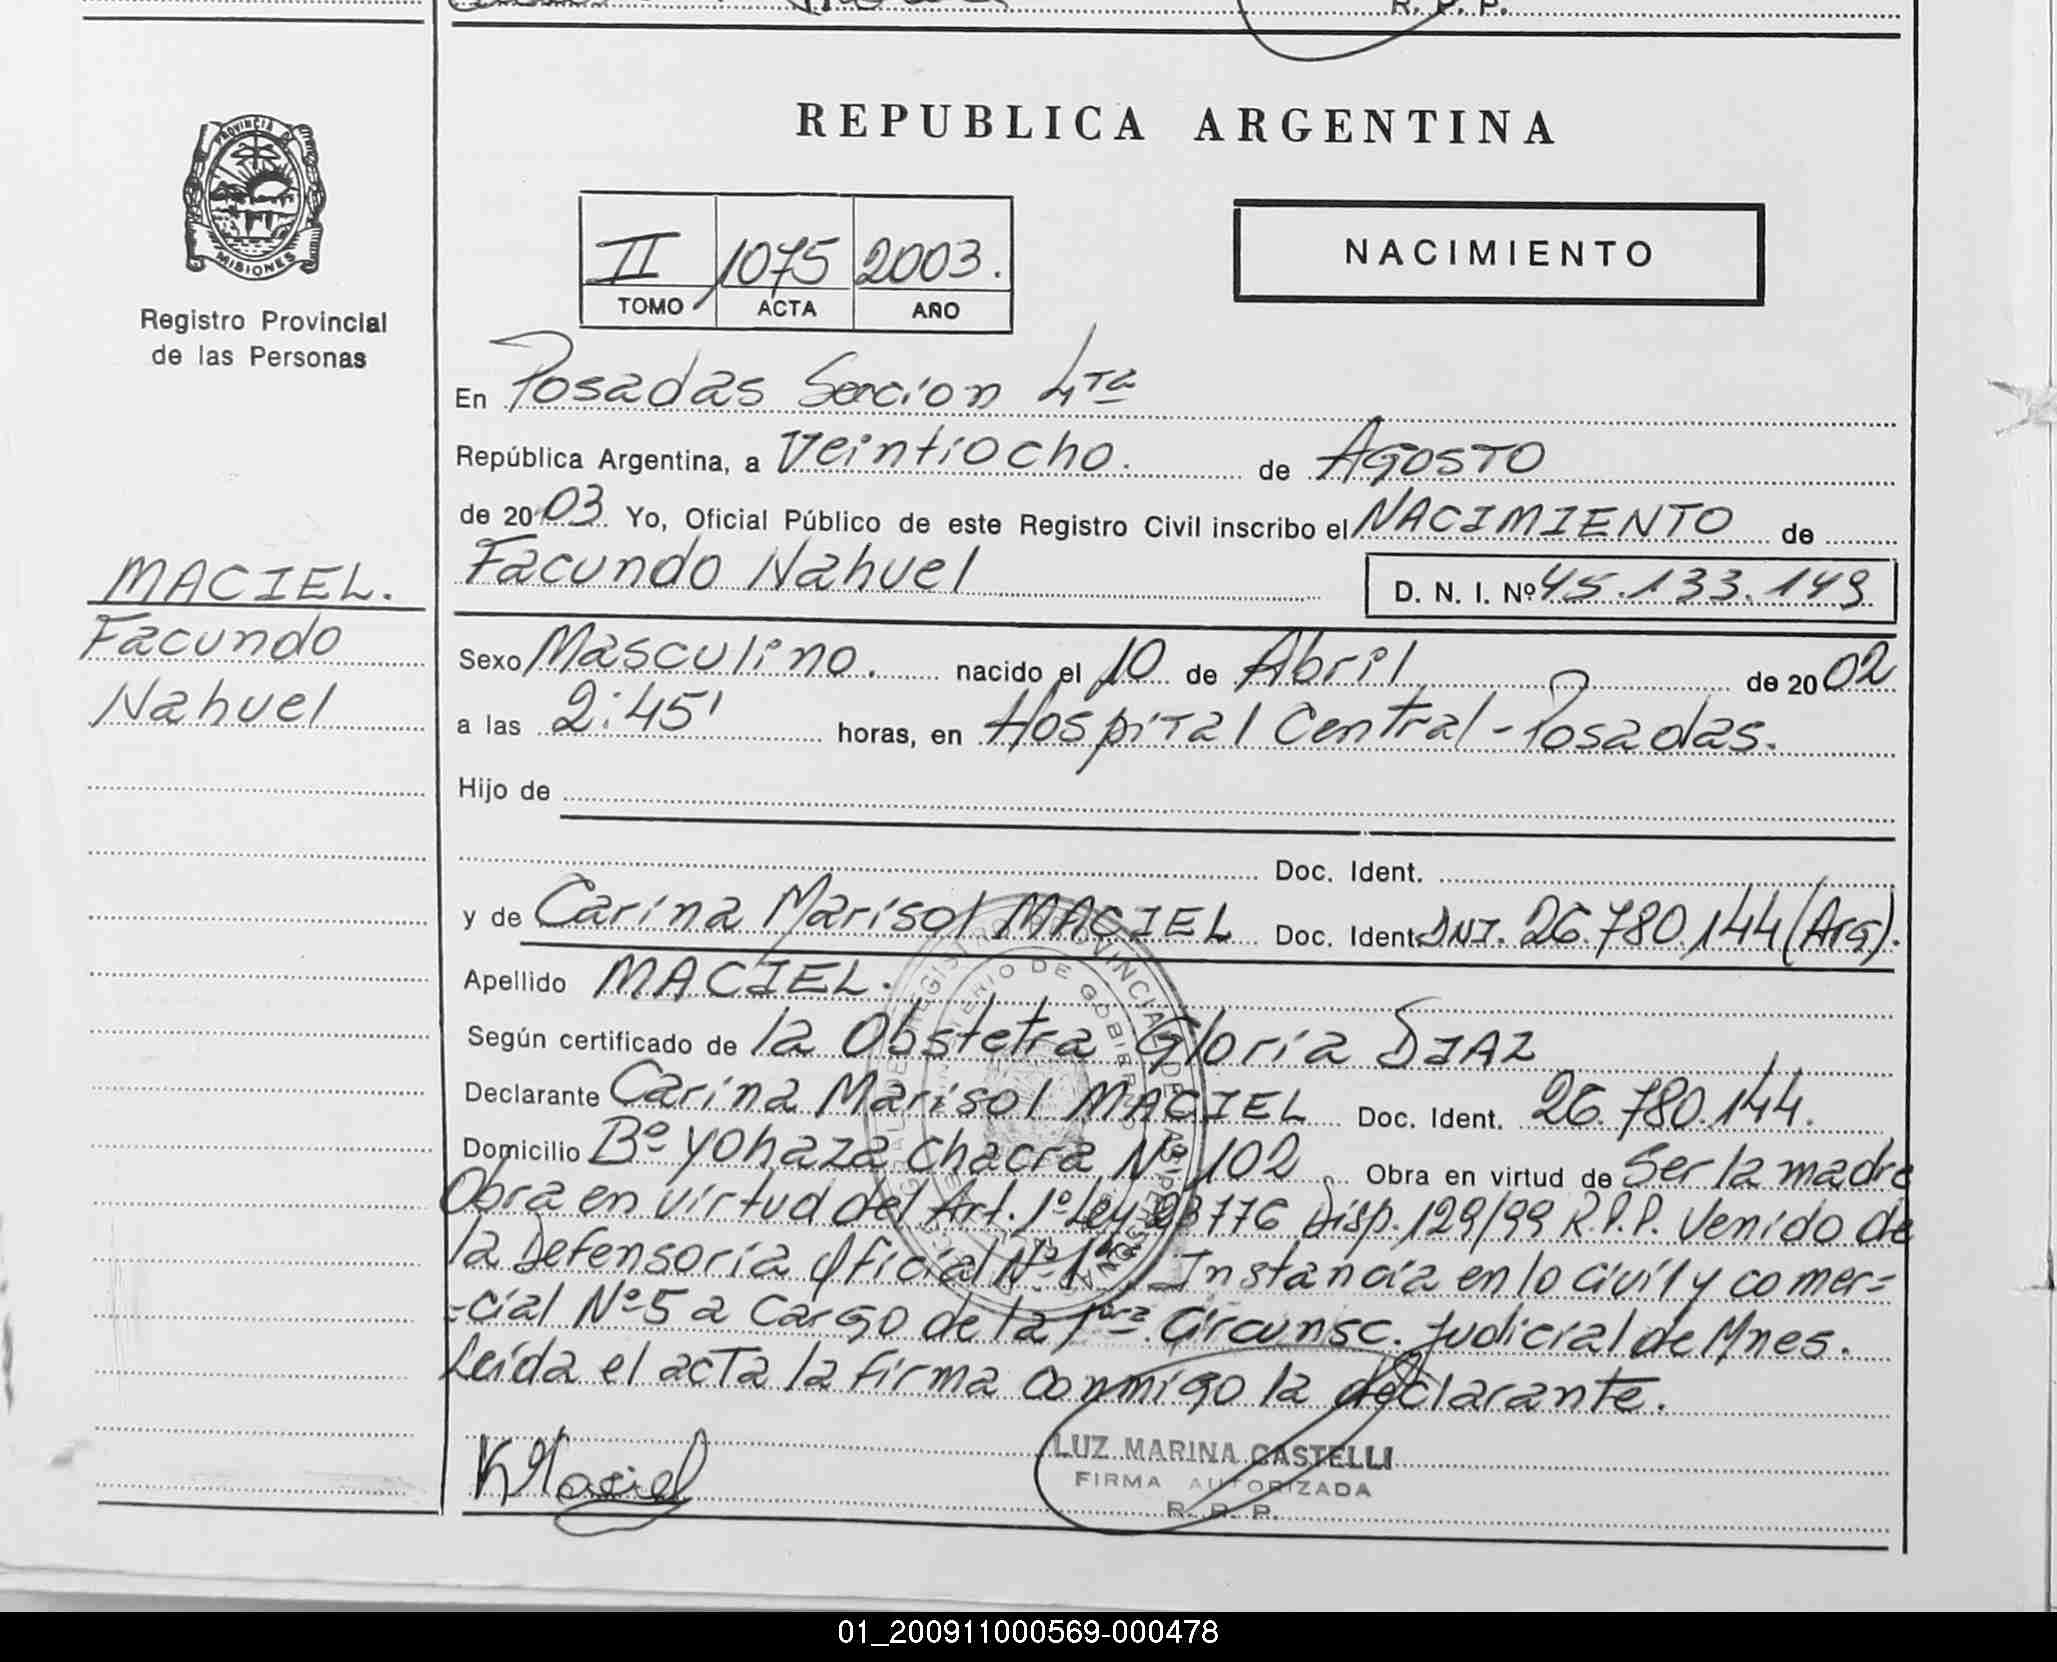 R. P. P.
REPUBLICA ARGENTINA
PROVINCIA DE
MISIONES
Registro Provincial
de las Personas
II 1075 2003.
TOMO ACTA AÑO
NACIMIENTO
En Posadas Seccion 4ta
República Argentina, a Veintiocho. de Agosto
de 2003 Yo, Oficial Público de este Registro Civil inscribo el NACIMIENTO de
Facundo Nahuel D. N. I. Nº 45.133.149
MACIEL.
Facundo
Nahuel
Sexo Masculino. nacido el 10 de Abril de 2002
a las 2:45' horas, en Hospital Central - Posadas.
Hijo de
Doc. Ident.
y de Carina Marisol MACIEL Doc. Ident. DNI. 26.780.144 (Arg).
Apellido MACIEL.
Según certificado de la Obstetra Gloria DIAZ
Declarante Carina Marisol MACIEL Doc. Ident. 26.780.144.
Domicilio Bº Yohaza chacra Nº 102 Obra en virtud de Ser la madre
Obra en virtud del Art. 1º Ley 23776 Disp. 129/99 R.P.P. Venido de
la Defensoría Oficial Nº 1 Instancia en lo civil y comer=
=cial Nº 5 a cargo de la 1ra Circunsc. Judicial de Mnes.
Leída el acta la firma conmigo la declarante.
K Maciel
LUZ MARINA CASTELLI
FIRMA AUTORIZADA
R. P. P.
01_200911000569-000478